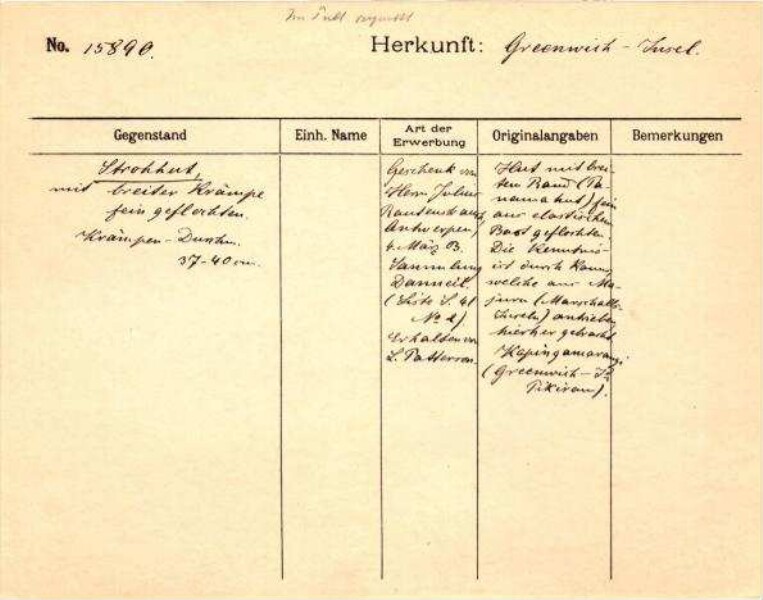 Im Pult
No. 15890.
Herkunft: Greenwich-Insel.
Gegenstand
Einh. Name
Art der
Erwerbung
Originalangaben
Bemerkungen
Strohhut,
mit breiter Krämpe
fein geflochten.
Krämpen-Durchm.
37-40 cm.
Geschenk von
Herrn Julius
Rautenstrauch,
Antwerpen,
4. März 13.
Sammlung
Danneil.
(Liste S. 41
No 2).
Erhalten von
L. Patterson.
Hut mit brei-
ten Rand (Pa-
namahut) fein
aus elastischem
Bast geflochten.
Die Kenntnis
ist durch
welche aus Ma-
juru (Marschall-
Inseln) antrieben
hierher gebracht.
Kapingamarangi
(Greenwich-Is
Pikiram).